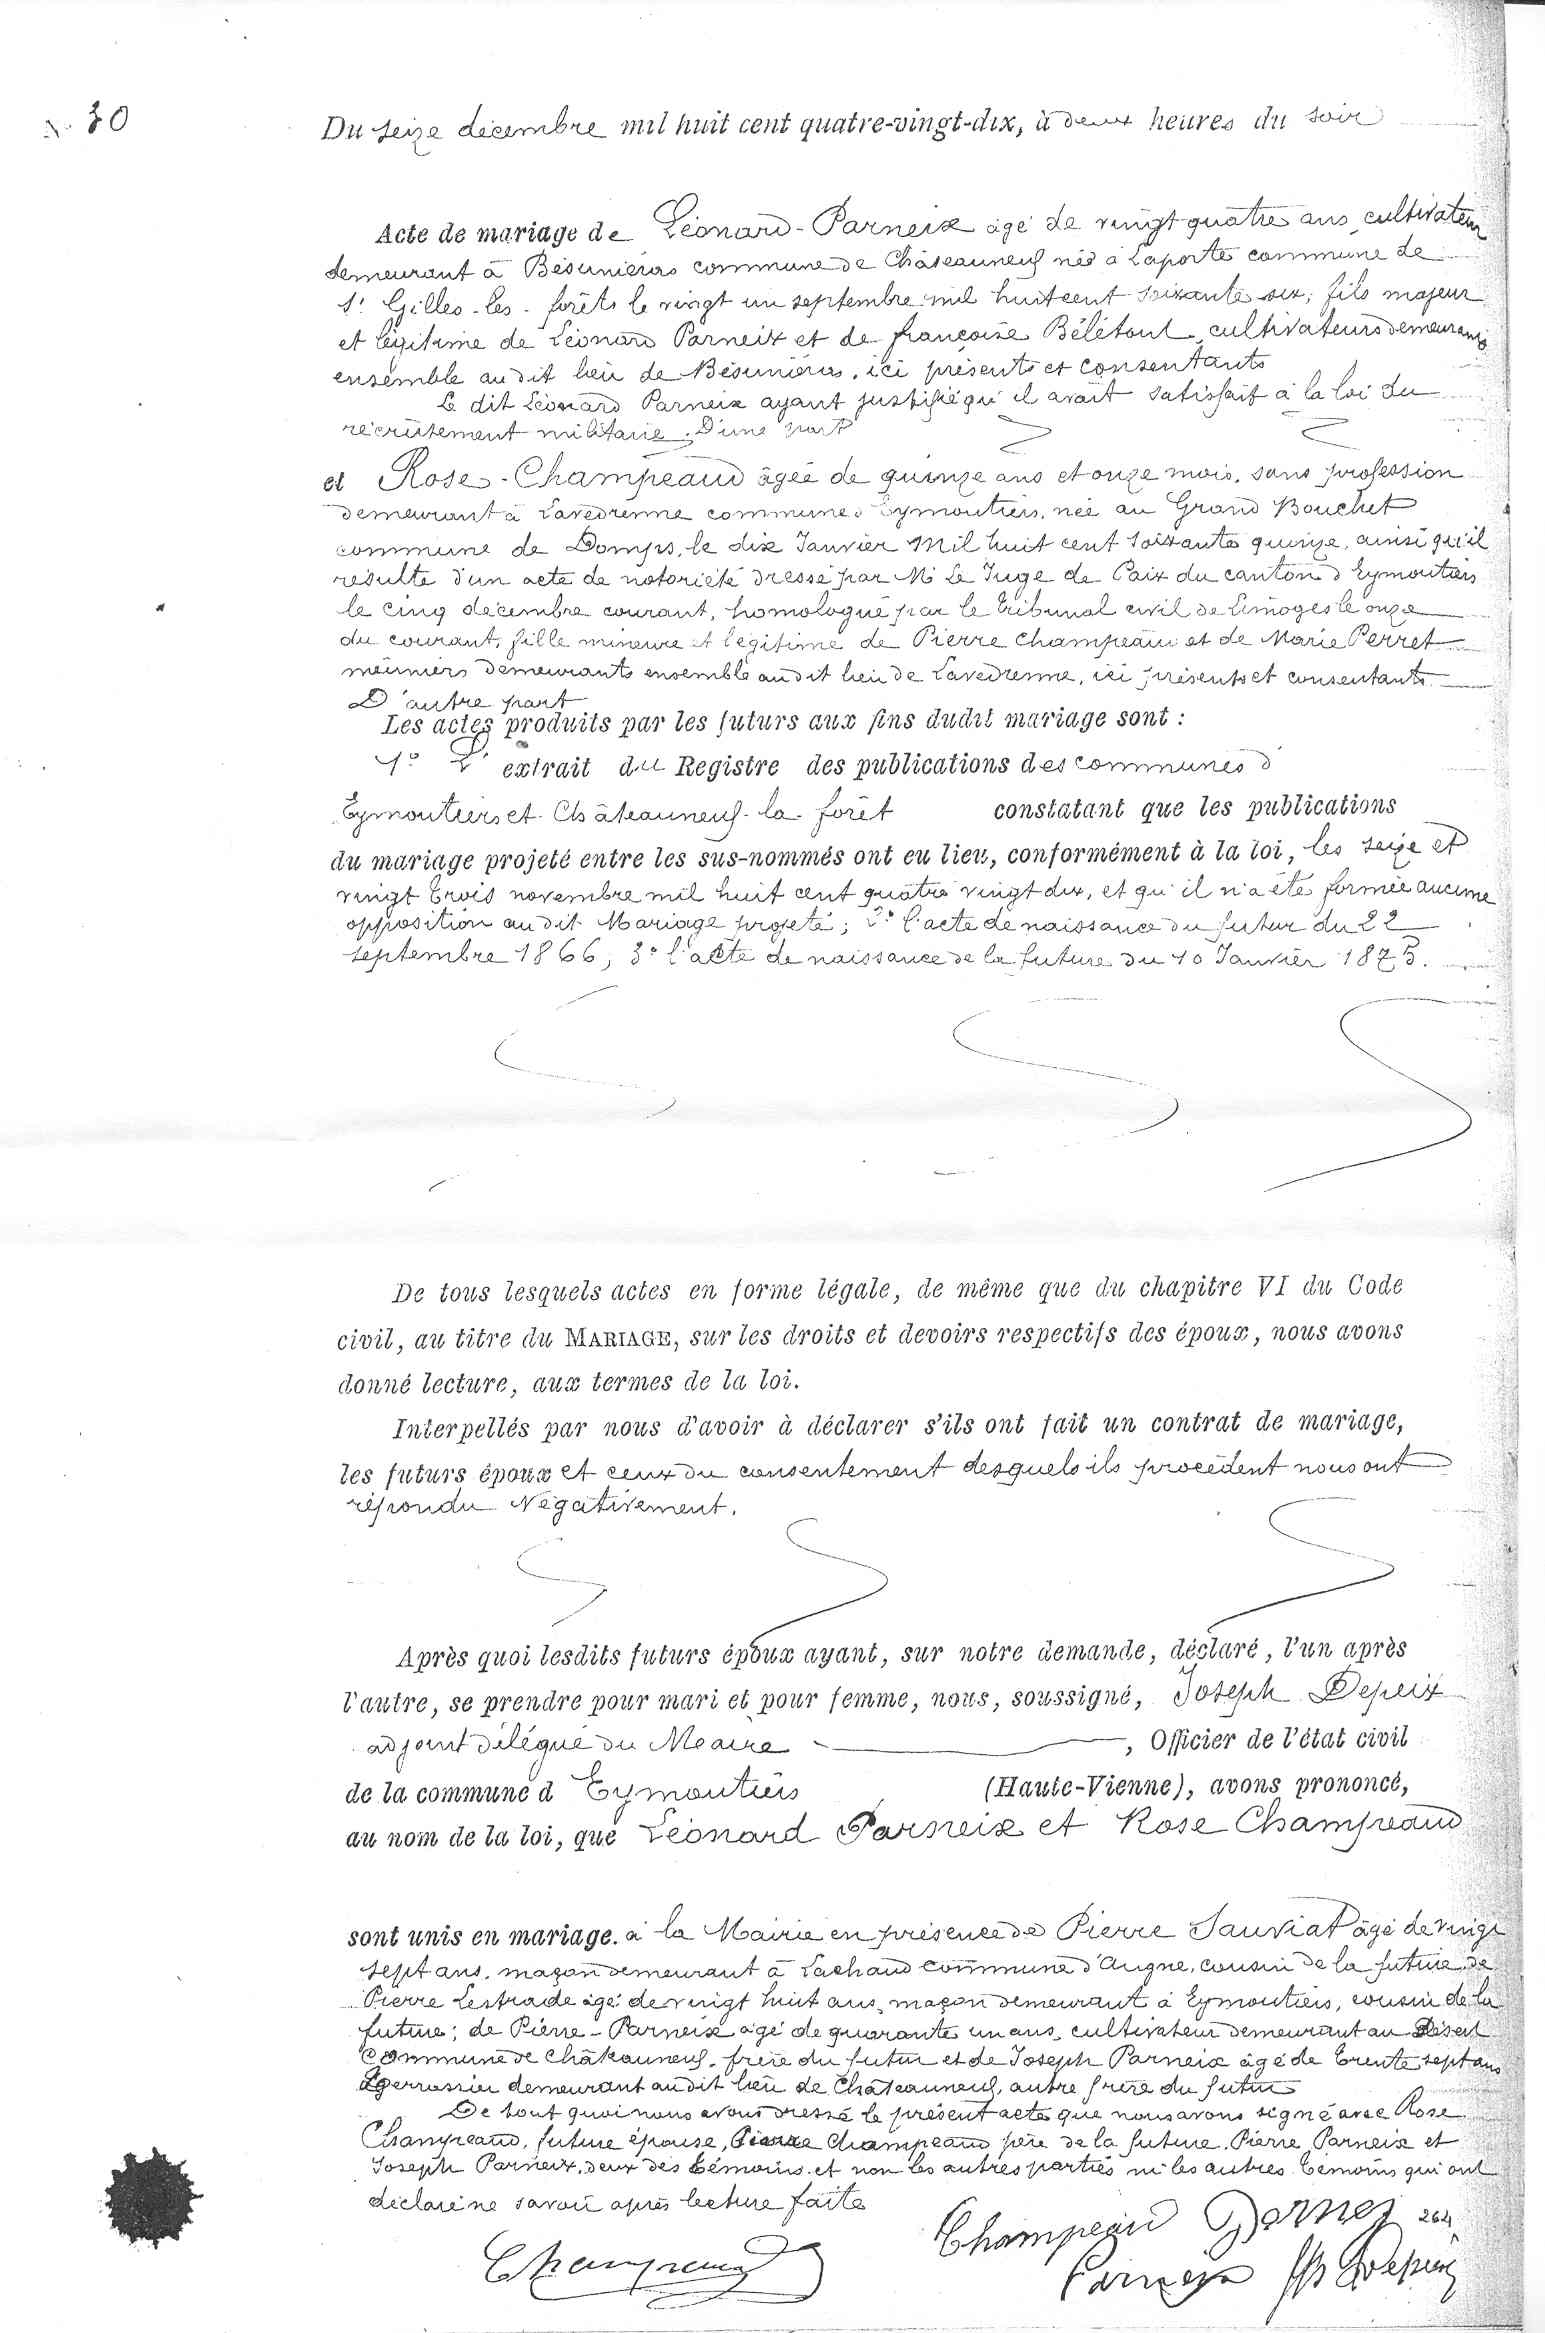 N° 30
Du seize décembre mil huit cent quatre-vingt-dix, à deux heures du soir
Acte de mariage de Léonard - Parneix agé de vingt quatre ans, cultivateur
demeurant à Bésuniéras commune de Châteauneuf né à Laporte commune de
St Gilles-les-forêts le vingt un septembre mil huit cent soixante six, fils majeur
et légitime de Léonard Parneix et de françoise Bélétoul cultivateurs demeurants
ensemble au dit lieu de Bésuniéras, ici présents et consentants
Le dit Léonard Parneix ayant justifié qu'il avait satisfait à la loi du
recrutement militaire. D'une part
et Rose - Champeaud âgée de quinze ans et onze mois, sans profession
demeurant à Lavedrenne commune d'Eymoutiers, née au Grand Bouchet
commune de Domps, le dix Janvier Mil huit cent soixante quinze, ainsi qu'il
résulte d'un acte de notoriété dressé par Mr Le Juge de Paix du canton d'Eymoutiers
le cinq décembre courant, homologué par le tribunal civil de Limoges le onze
du courant, fille mineure et légitime de Pierre Champeaud et de Marie Perret
meuniers demeurants ensemble au dit lieu de Lavedrenne, ici présents et consentants
D'autre part
Les actes produits par les futurs aux fins dudit mariage sont :
1° L'extrait du Registre des publications des communes d'
Eymoutiers et Châteauneuf-la-forêt constatant que les publications
du mariage projeté entre les sus-nommés ont eu lieu, conformément à la loi, les seize et
vingt trois novembre mil huit cent quatre vingt dix, et qu'il n'a été formée aucune
opposition au dit Mariage projeté ; 2° l'acte de naissance du futur du 22
septembre 1866, 3° l'acte de naissance de la future du 10 Janvier 1875.
De tous lesquels actes en forme légale, de même que du chapitre VI du Code
civil, au titre du MARIAGE, sur les droits et devoirs respectifs des époux, nous avons
donné lecture, aux termes de la loi.
Interpellés par nous d'avoir à déclarer s'ils ont fait un contrat de mariage,
les futurs époux et ceux du consentement desquels ils procèdent nous ont
répondu Négativement.
Après quoi lesdits futurs époux ayant, sur notre demande, déclaré, l'un après
l'autre, se prendre pour mari et pour femme, nous, soussigné, Joseph Depeix
adjoint délégué du Maire, Officier de l'état civil
de la commune d Eymoutiers (Haute-Vienne), avons prononcé,
au nom de la loi, que Léonard Parneix et Rose Champeaud
sont unis en mariage. à la Mairie en présence de Pierre Sauviat âgé de vingt
sept ans, maçon demeurant à Lachaud commune d'Augne, cousin de la future, de
Pierre Lestrade âgé de vingt huit ans, maçon demeurant à Eymoutiers, cousin de la
future ; de Pierre - Parneix agé de quarante un ans, cultivateur demeurant au Désert
commune de Châteauneuf, frère du futur et de Joseph Parneix âgé de trente sept ans
demeurant au dit lieu de Châteauneuf, autre frère du futur
De tout quoi nous avons dressé le présent acte que nous avons signé avec Rose
Champeaud, future épouse, Pierre Champeaud père de la future, Pierre Parneix et
Joseph Parneix, deux des témoins et non les autres parties ni les autres témoins qui ont
déclaré ne savoir après lecture faite
Champeaud Parneix 264
Champeaud Parneix Jh Depeix